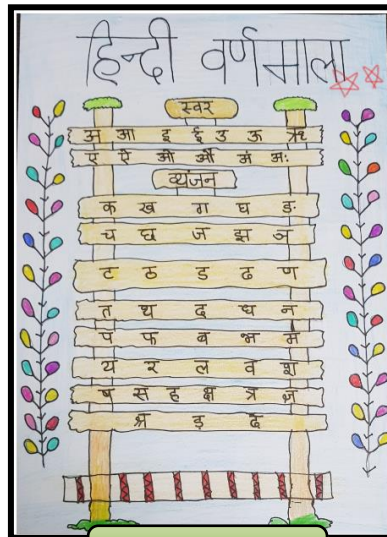 हिन्दी वर्णमाला
स्वर
अ आ इ ई उ ऊ ऋ
ए ऐ ओ औ अं अः
व्यंजन
क ख ग घ ङ
च छ ज झ ञ
ट ठ ड ढ ण
त थ द ध न
प फ ब भ म
य र ल व श
ष स ह क्ष त्र ज्ञ
श्र ड़ ढ़